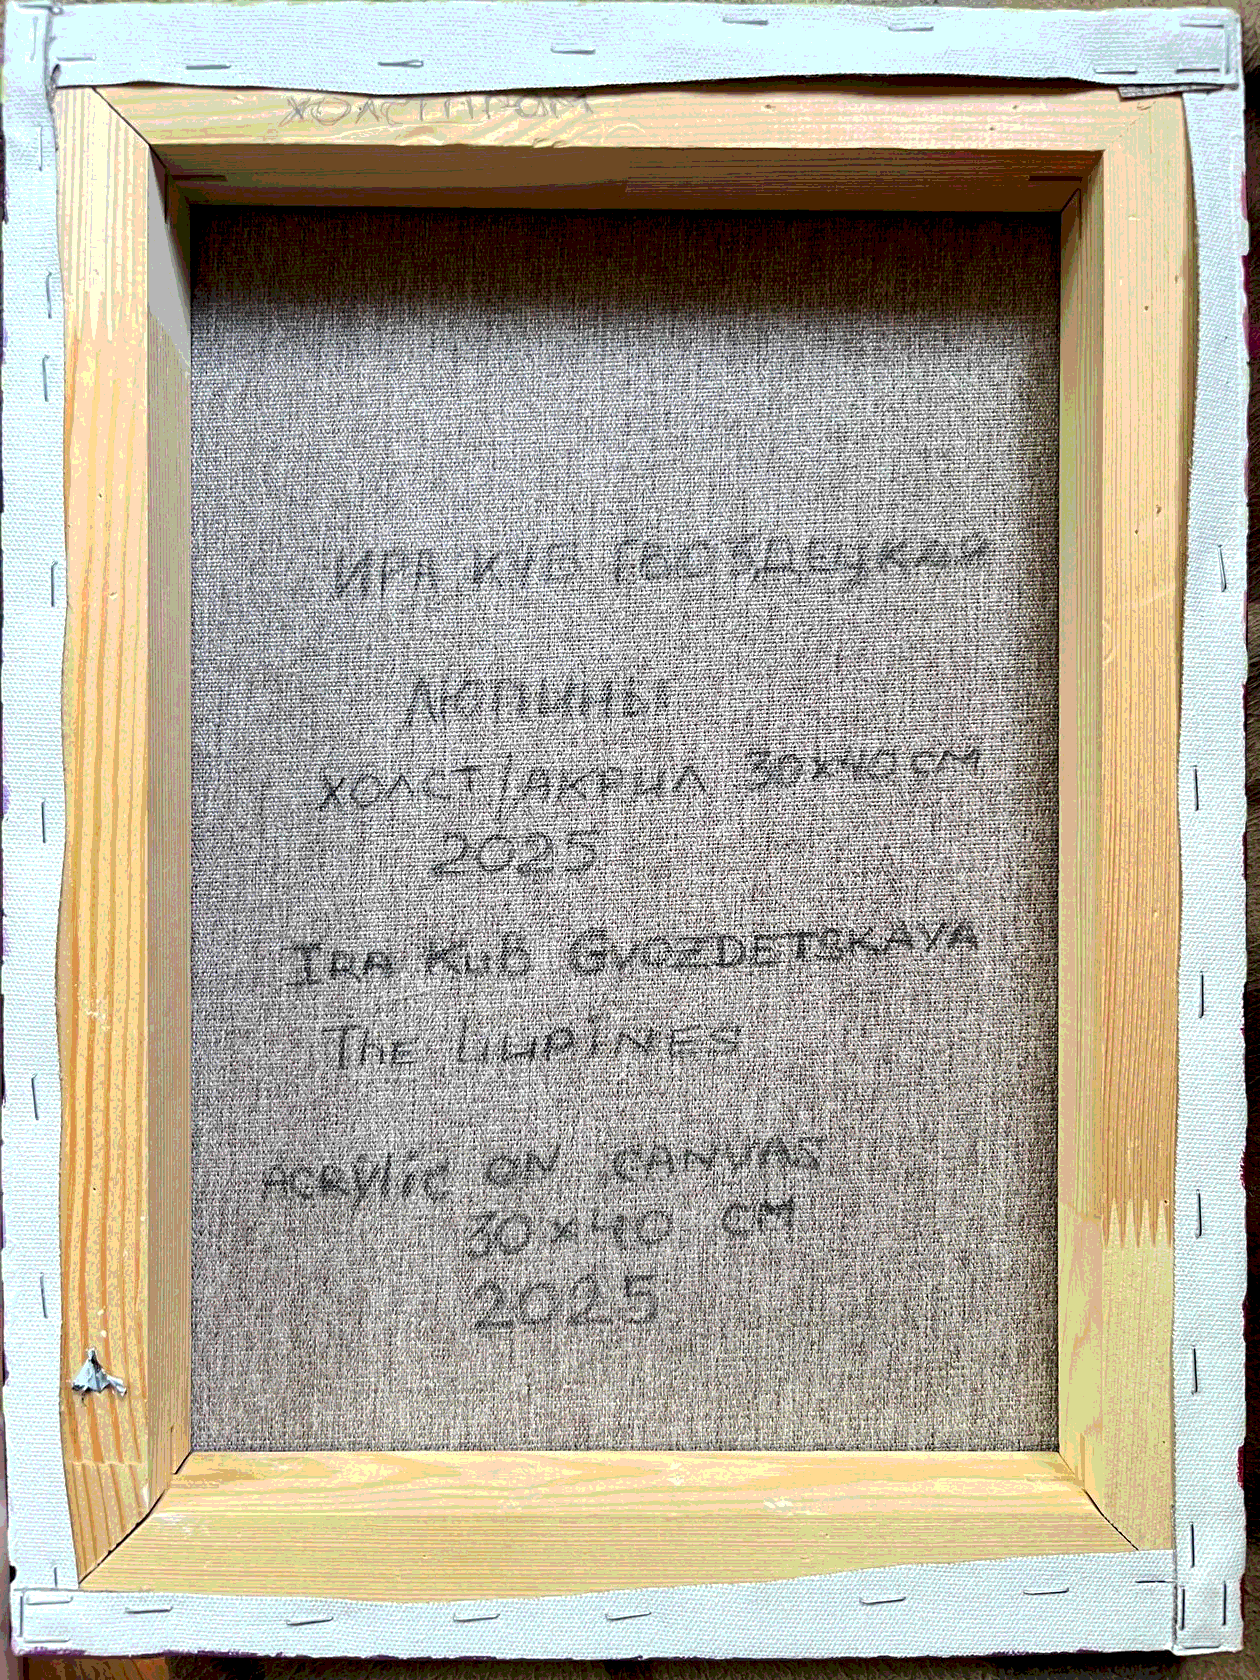 ХОЛСТПРОМ
ИРА КУБ ГВОЗДЕЦКАЯ
ЛЮПИНЫ
ХОЛСТ/АКРИЛ 30X40 СМ
2025
IRA KUB GVOZDETSKAYA
The LUUPINES
ACRYLIC ON CANVAS
30X40 CM
2025